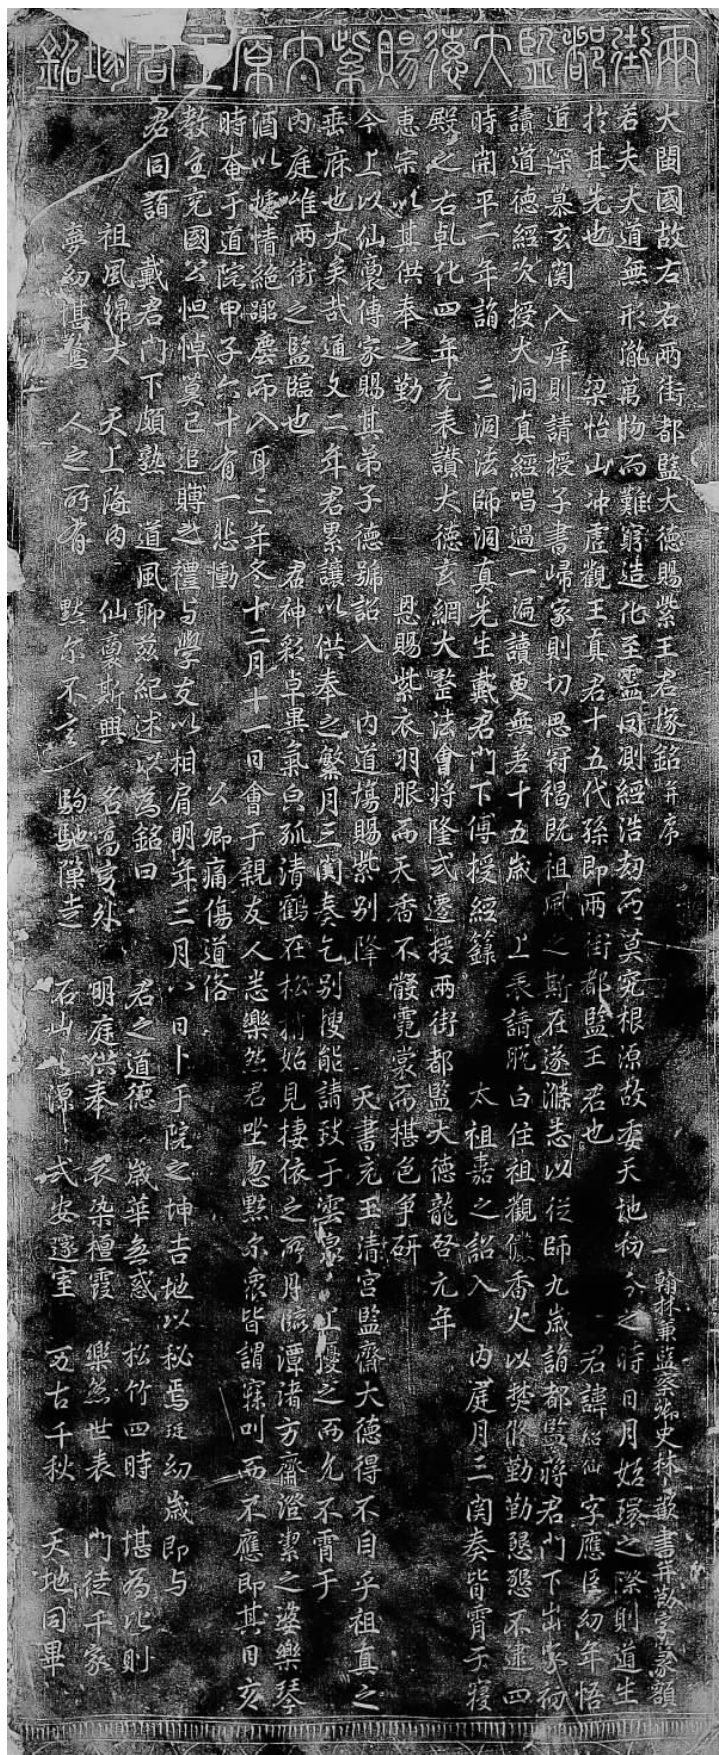 兩街都監大德賜紫太原王君墜銘
大閩國故左右兩街都監大德賜紫王君墜銘并序
翰林兼監察御史林 書并勒字篆額
若夫大道無形瀧萬物而難窮造化至靈罔測經浩劫而莫究根源故委天地初分之時日月始環之際則道生
於其先也 梁怡山冲虛觀王真君十五代孫即兩街都監王君也 君諱紹仙字應臣幼年悟
道深慕玄關入庠則請授子書歸家則切思冠褐既祖風之斯在遂滌志以從師九歲詣都監蔣君門下出家初
讀道德經次授大洞真經唱過一遍讀更無差十五歲 上表請脫白住祖觀儼香火以焚修勤勤懇懇不逮四
時開平二年詣 三洞法師洞真先生戴君門下傳授經籙 太祖嘉之詔入 內庭月三關奏皆霄于寢
殿之右乹化四年充表讚大德玄綱大整法會將隆貳遷授兩街都監大德龍啓元年
惠宗以其供奉之勤 恩賜紫衣羽服而天香不散霓裳而椹色爭研
今上以仙裔傳家賜其弟子德號詔入 內道場賜紫別降 天書充玉清宮監齋大德得不自乎祖真之
垂庥也大矣哉通文二年君累讓以供奉之繁月三關奏乞別搜能請致于雲泉 上擾之而允不霄于
內庭唯兩街之監臨也 君神彩卓異氣㒵孤清鶴在松梢始見棲依之所月臨潭渚方齋澄潔之姿樂琴
酒以攄情絕蹤塵而入耳三年冬十二月十一日會于親友人悉樂然君坐忽黙尒衆皆謂寐叫而不應即其日亥
時奄于道院甲子六十有一悲慟 公卿痛傷道俗
教主兗國公怛悼莫已追賻之禮与學友以相肩明年三月八日卜于院之坤吉地以秘焉 幼歲即与
君同詣 戴君門下頗熟 道風聊茲紀述以為銘曰 君之道德 歲華無惑 松竹四時 堪為比則
祖風綿大 天上海內 仙裔斯興 名高穹外 明庭供奉 衣染檀霞 樂然世表 門徒千家
夢幻堪驚 人之所有 黙尒不言 駒馳 走 石山 源 式安邃室 万古千秋 天地同畢